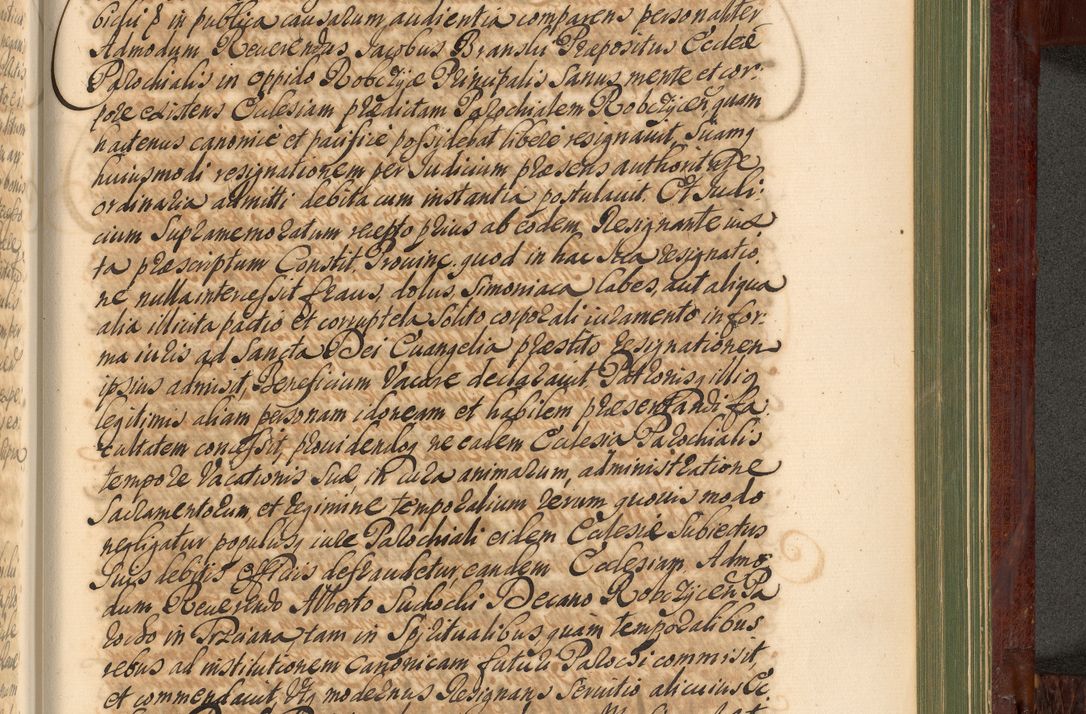 bicui ꝑ in publica causarum audientia comparens personaliter
Admodum Reuerendus Jacobus Branski Præpositus Eccłæ
Parochialis in oppido Robczyce Principalis sanus mente et cor:
pore existens Ecclesiam præditam Parochialem Robczycen quam
hactenus canonice et pacifice possidebat libere resignauit, suamq
huiusmodi resignationem per Judicium præsens authoritate
ordinaria admitti debita cum instantia postulauit. Et Judi:
cium supramemoratum recepto prius ab eodem Resignante iux
ta præscriptum Constit. Prouinc. quod in hac sua resignatio.
ne nulla intercessit fraus, dolus, simoniaca labes, aut aliqua
alia illicita pactio et corruptela solito corporali iuramento in for:
ma iuris ad Sancta Dei Euangelia præstito resignationem
ipsius admisit, Beneficium Vacare declarauit Patronisq illiq
legitimis aliam personam idoneam et habilem præsentandi fa:
cultatem concessit, prouidendoq ne eadem Ecclesia Parochialis
tempore Vacationis suæ, in cura animarum, administratione
Sacramentorum, et regimine temporalium rerum quouis modo
negligatur populusq iure Parochiali eidem Ecclesiæ subiectus
suis debitis officiis defraudetur, eandem Ecclesiam Admo:
dum Reuerendo Alberto Suchocki Decano Robczycen Pa
rocho in Przeciana tam in Spiritualibus quam temporalibus
rebus ad institutionem canonicam futuri Parochi commisit,
et commendauit, Utq modernus Resignans seruitio alicuius Ec